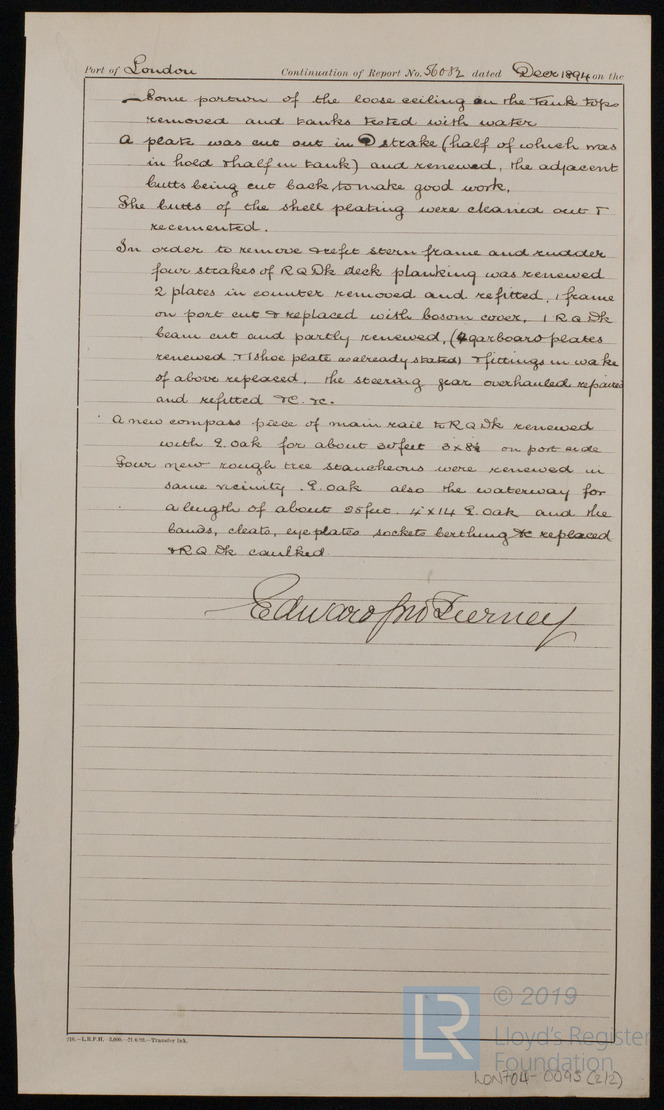 Port of London Continuation of Report No. 56082 dated Decr 1894 on the
Some portion of the loose ceiling on the Tank tops
removed and tanks tested with water
A plate was cut out in D strake (half of which was
in hold & half in tank) and renewed, the adjacent
butts being cut back to make good work.
The butts of the shell plating were cleaned out &
recemented.
In order to remove & refit stern frame and rudder
four strakes of R Q Dk deck planking was renewed
2 plates in counter removed and refitted, 1 frame
on port cut & replaced with bosom cover, 1 R Q Dk
beam cut and partly renewed, (4 garboard plates
renewed & 1 shoe plate as already stated) & fittings in wake
of above replaced, the steering gear overhauled repaired
and refitted &c. &c.
A new compass piece of main rail to R Q Dk renewed
with E. Oak for about 30 feet 3 x 8½ on port side
Four new rough tree stancheons were renewed in
same vicinity . E. oak also the waterway for
a length of about 25 feet . 4 x 14 E. Oak and the
bands, cleats, eyeplates sockets berthing &c replaced
& R Q Dk caulked
Edward Jno Tierney
210.—L.R.P.H. 3,000.—21.6.93.—Transfer Ink.
LR
© 2019
Lloyd's Register
Foundation
LON704-0095 (2/2)